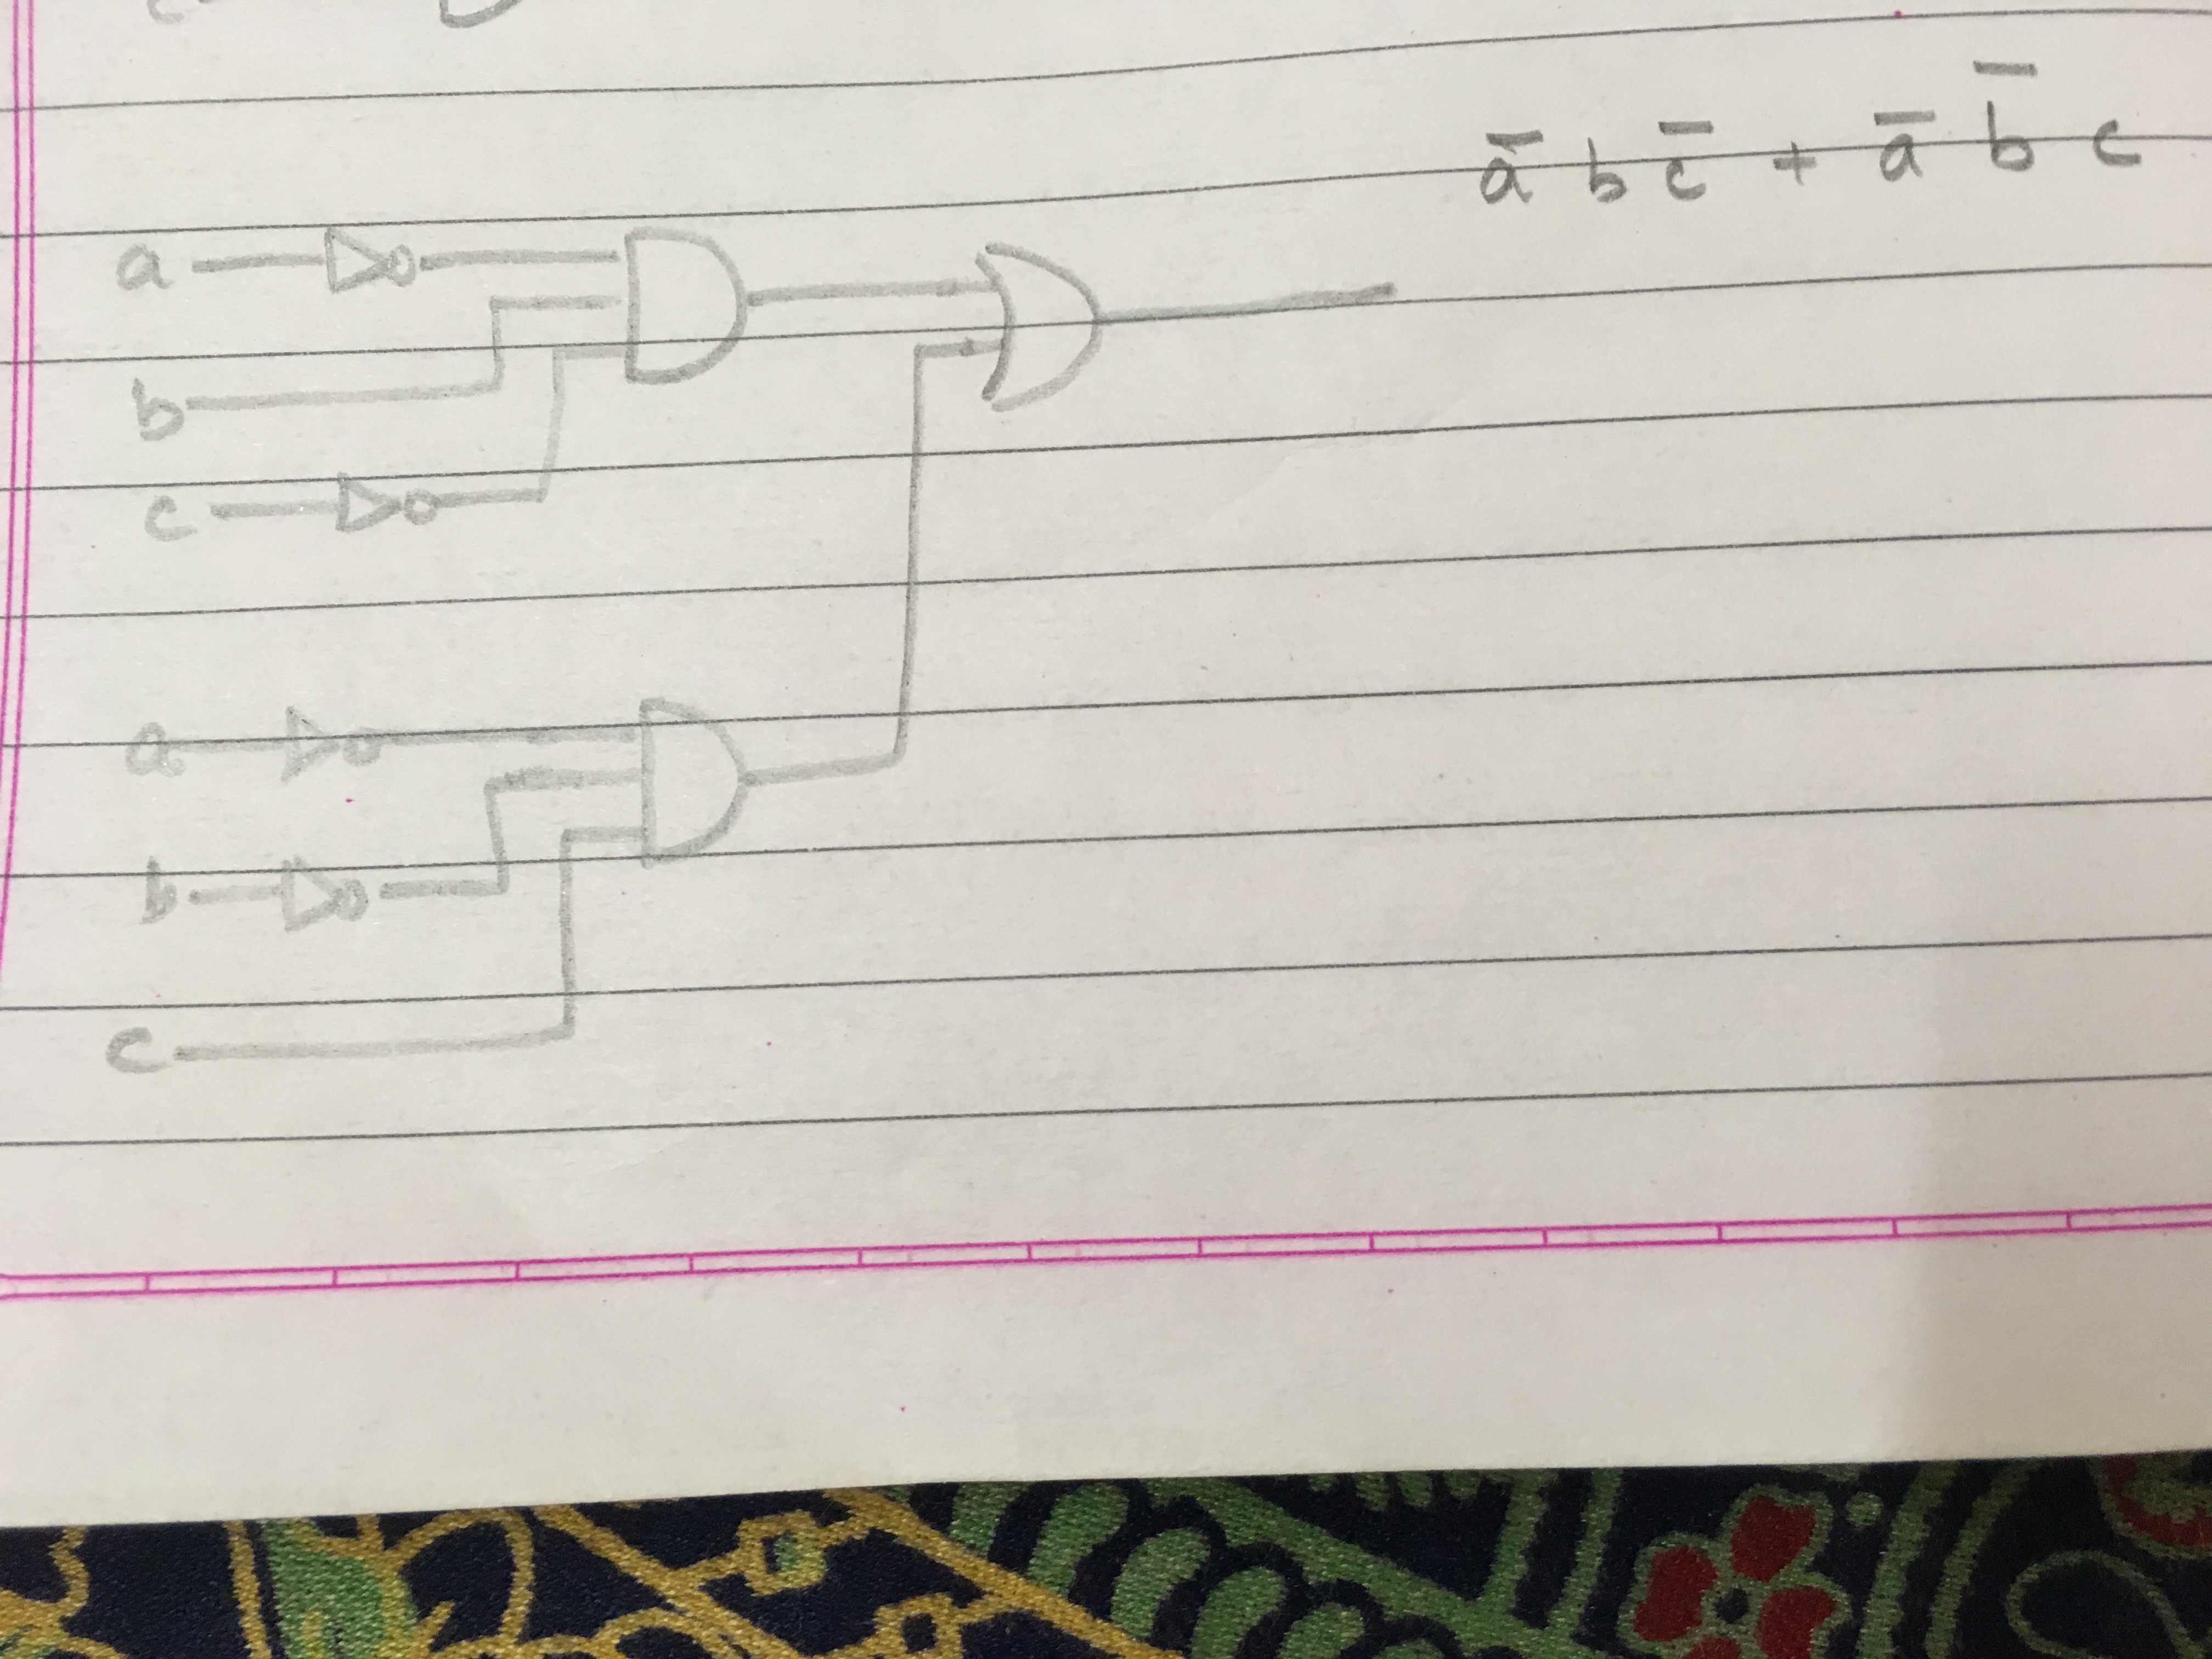 a
b
c
a
b
c
a̅ b c̅ + a̅ b̅ c